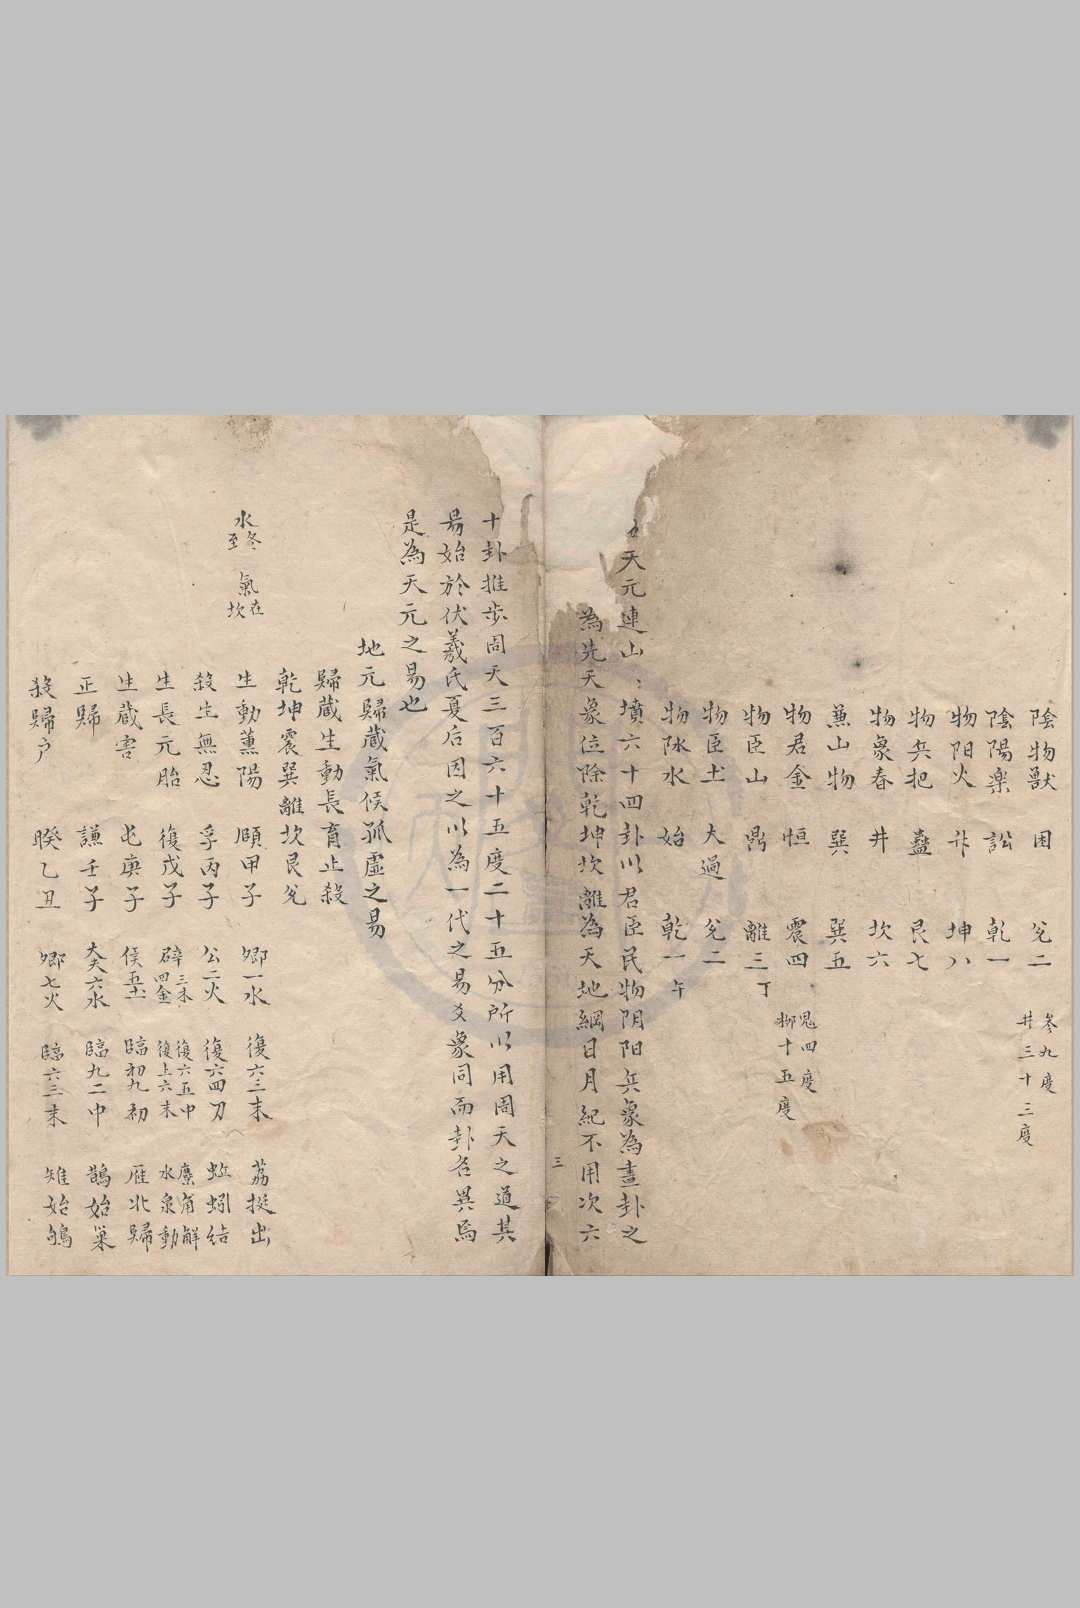 陰物獸 困 兌二 參九度
井三十三度
陰陽樂 訟 乾一
物陽火 升 坤八
物兵把 蠱 艮七
物象春 井 坎六
兼山物 巽 巽五
物君金 恒 震四 鬼四度
柳十五度
物臣山 鼎 離三 丁
物臣土 大過 兌二
物陽水 始 乾一 午
天元連山〻墳六十四卦以君臣民物阴阳兵象為畫卦之
為先天象位除乾坤坎離為天地綱日月紀不用次六
三
十卦推步周天三百六十五度二十五分所以用周天之道其
易始於伏羲氏夏后因之以為一代之易爻象同而卦各異焉
是為天元之易也
地元歸藏氣候孤虛之易
歸藏生動長育止殺
乾坤震巽離坎艮兌
水冬至 氣在坎 生動薰陽 頤甲子 卿一水 復六三末 荔挺出
殺生無忍 孚丙子 公二火 復六四刀 蚯蚓結
生長元胎 復戊子 辟三木 四金 復六五中 復上六末 麋角解 水泉動
生藏害 屯庚子 侯五土 臨初九初 雁北歸
正歸 謙壬子 大夫六水 臨九二中 鵲始巢
殺歸户 睽乙丑 卿七火 臨六三末 雉始鴝